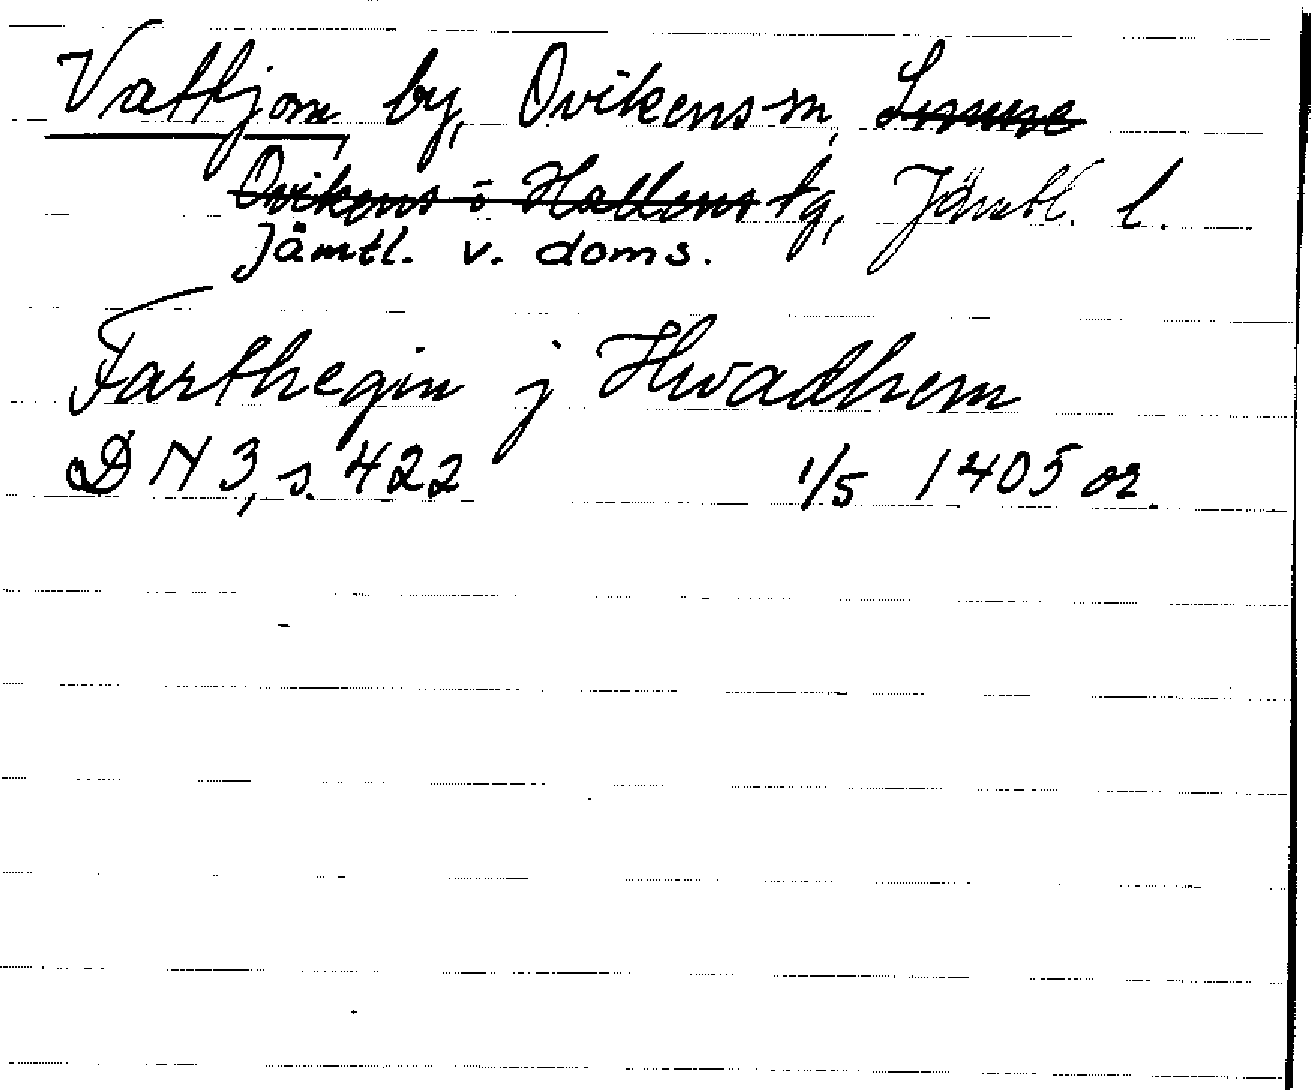 Vattjom, by, Ovikens sn,
Ovikens o Hallens tg, Jämtl. l.
Jämtl. v. doms.
Farthegin j Hwadhem
DN 3, s. 422 1/5 1405 or.